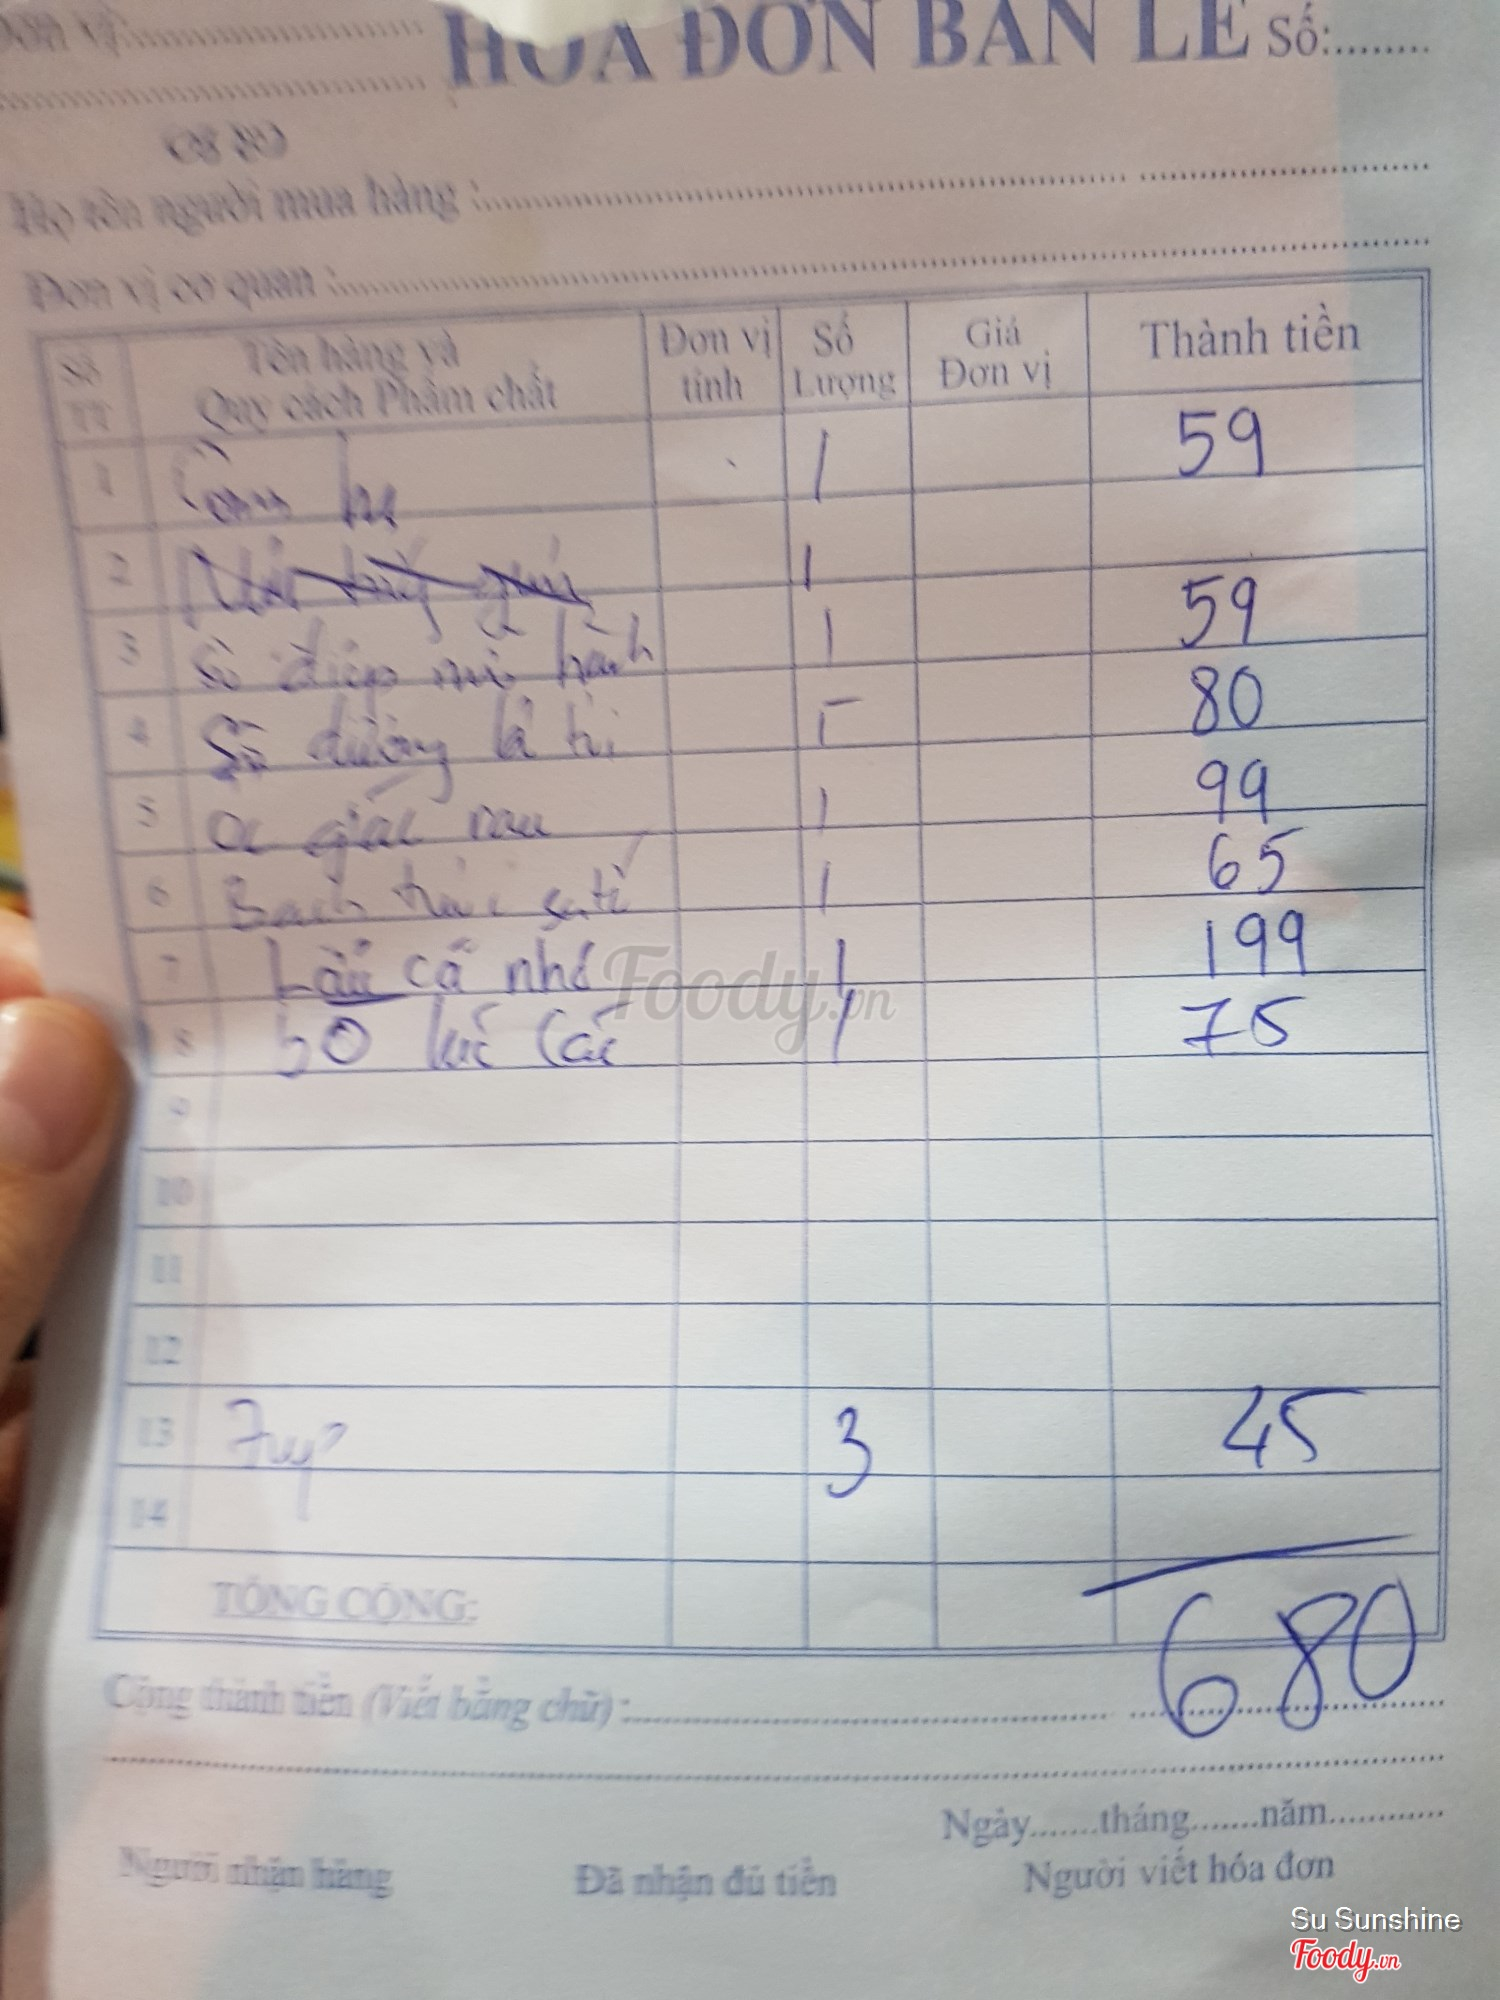 Đơn vị:
HÓA ĐƠN BÁN LẺ Số:
Họ tên người mua hàng :
Đơn vị cơ quan :
Số TT Tên hàng và Quy cách Phẩm chất Đơn vị tính Số Lượng Giá Đơn vị Thành tiền
1 1 59
2 1
3 Sò điệp mỡ hành 1 59
4 Sò dương lá tỏi 5 80
5 ốc giác rau 1 99
6 Bạch tuộc sa tế 1 65
7 Lẩu cá nhỏ 1 199
8 bò 1 75
9
10
11
12
13 3 45
14
TỔNG CỘNG: 680
Cộng thành tiền (Viết bằng chữ) :
Ngày.......tháng.......năm............
Người nhận hàng Đã nhận đủ tiền Người viết hóa đơn
Foody.vn
Su Sunshine
Foody.vn